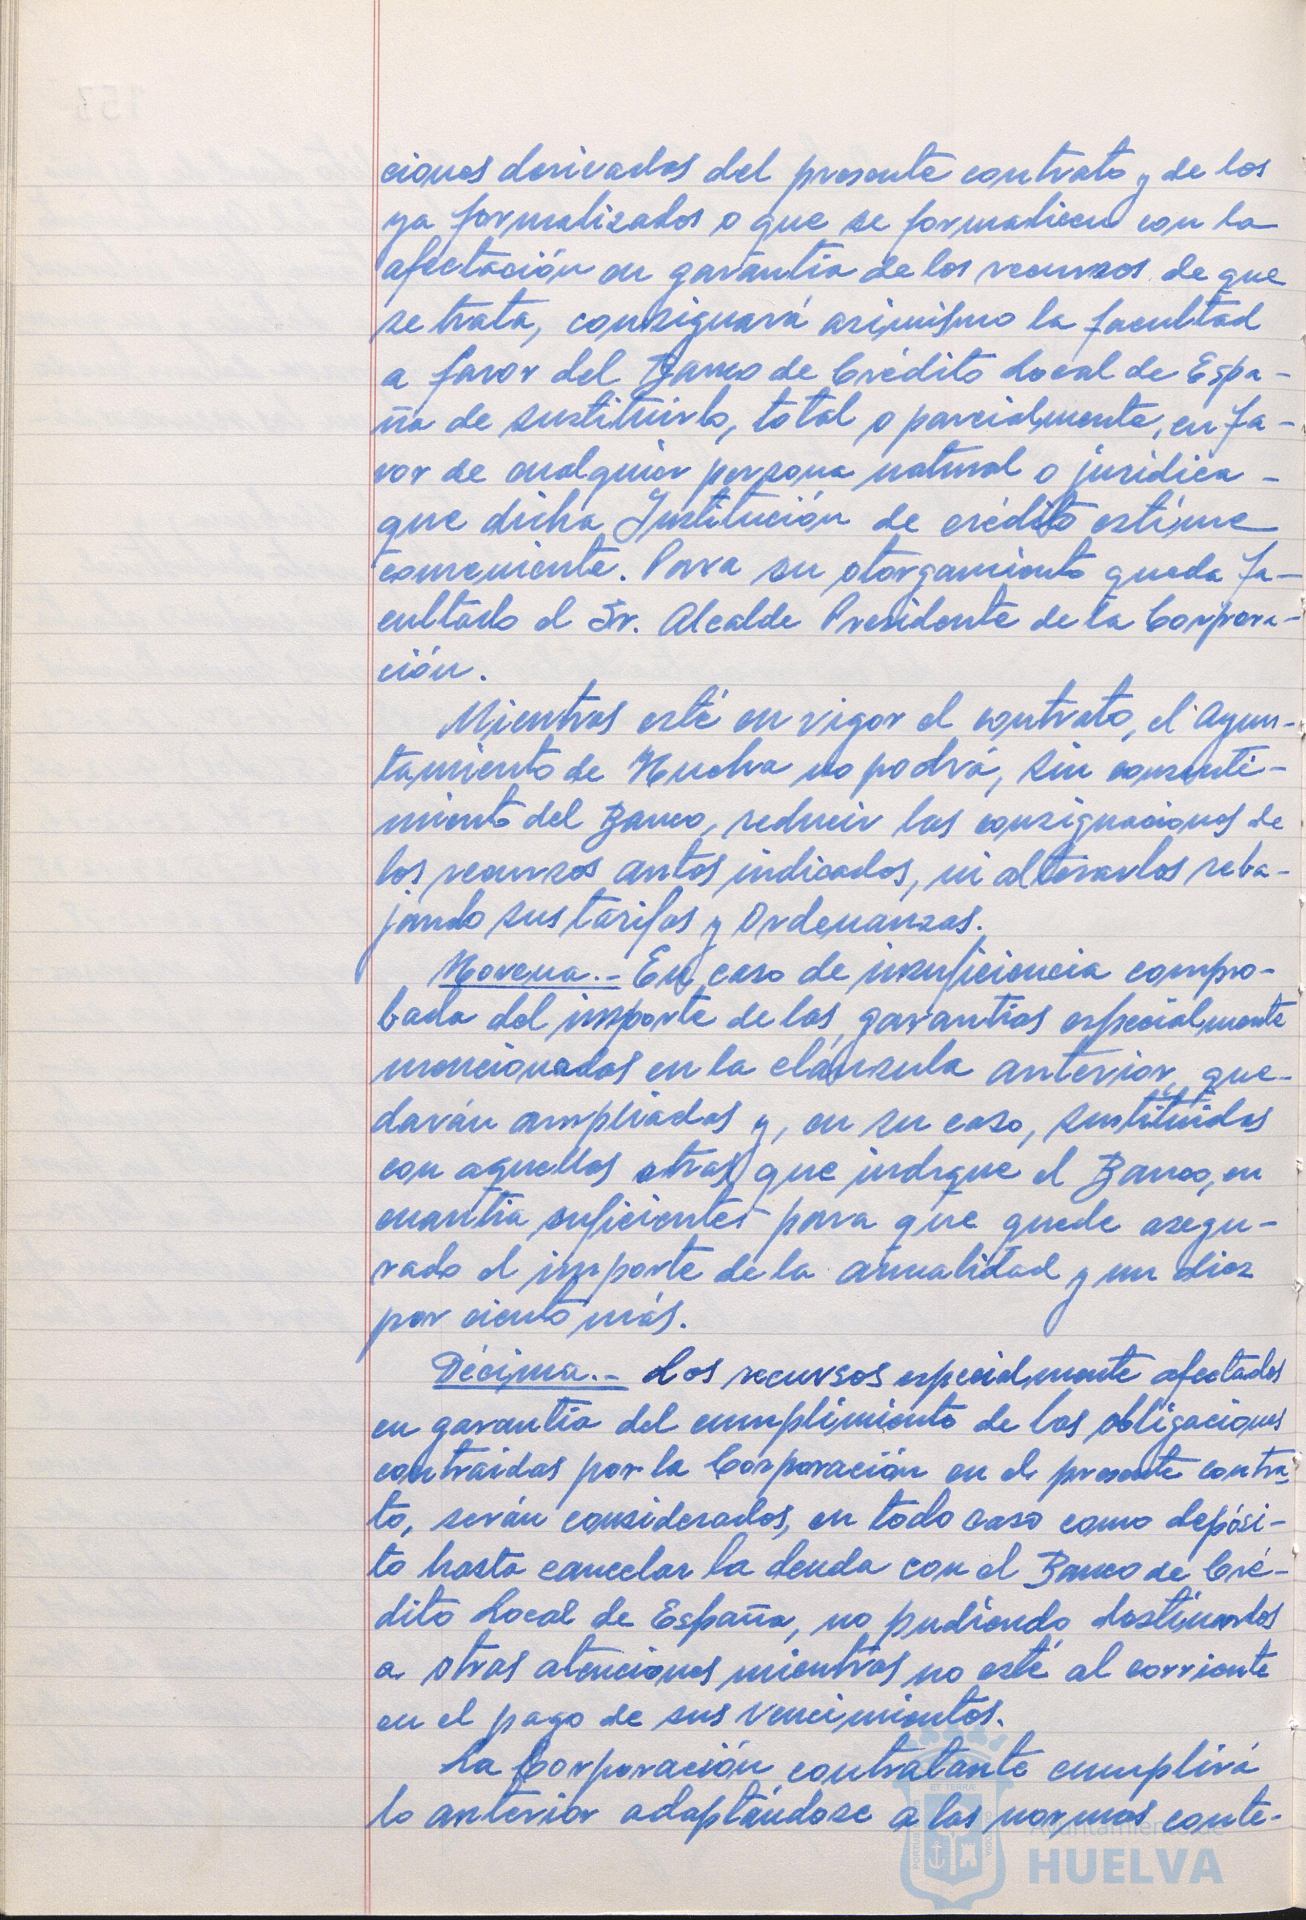 ciones derivadas del presente contrato y de los
ya formalizados o que se formalicen con la
afectación en garantía de los recursos de que
se trata, consignará asimismo la facultad
a favor del Banco de Crédito Local de Espa-
ña de sustituirlo, total o parcialmente, en fa-
vor de cualquier persona natural o jurídica -
que dicha Institución de crédito estime
conveniente. Para su otorgamiento queda fa-
cultado el Sr. Alcalde Presidente de la Corpora-
ción.
Mientras esté en vigor el contrato, el Ayun-
tamiento de Huelva no podrá, sin consenti-
miento del Banco, reducir las consignaciones de
los recursos antes indicados, ni alterarlos reba-
jando sus tarifas y Ordenanzas.
Novena.- En caso de insuficiencia compro-
bada del importe de las garantías especialmente
mencionadas en la cláusula anterior, que-
darán ampliadas y, en su caso, sustituidas
con aquellas otras que indique el Banco, en
cuantía suficientes para que quede asegu-
rado el importe de la anualidad y un diez
por ciento más.
Décima.- Los recursos especialmente afectados
en garantía del cumplimiento de las obligaciones
contraidas por la Corporación en el presente contra-
to, serán considerados, en todo caso como depósi-
to hasta cancelar la deuda con el Banco de Cré-
dito Local de España, no pudiendo destinarlos
a otras atenciones mientras no esté al corriente
en el pago de sus vencimientos.
La Corporación contratante cumplirá
lo anterior adaptándose a las normas conte-
Ayuntamiento de
HUELVA